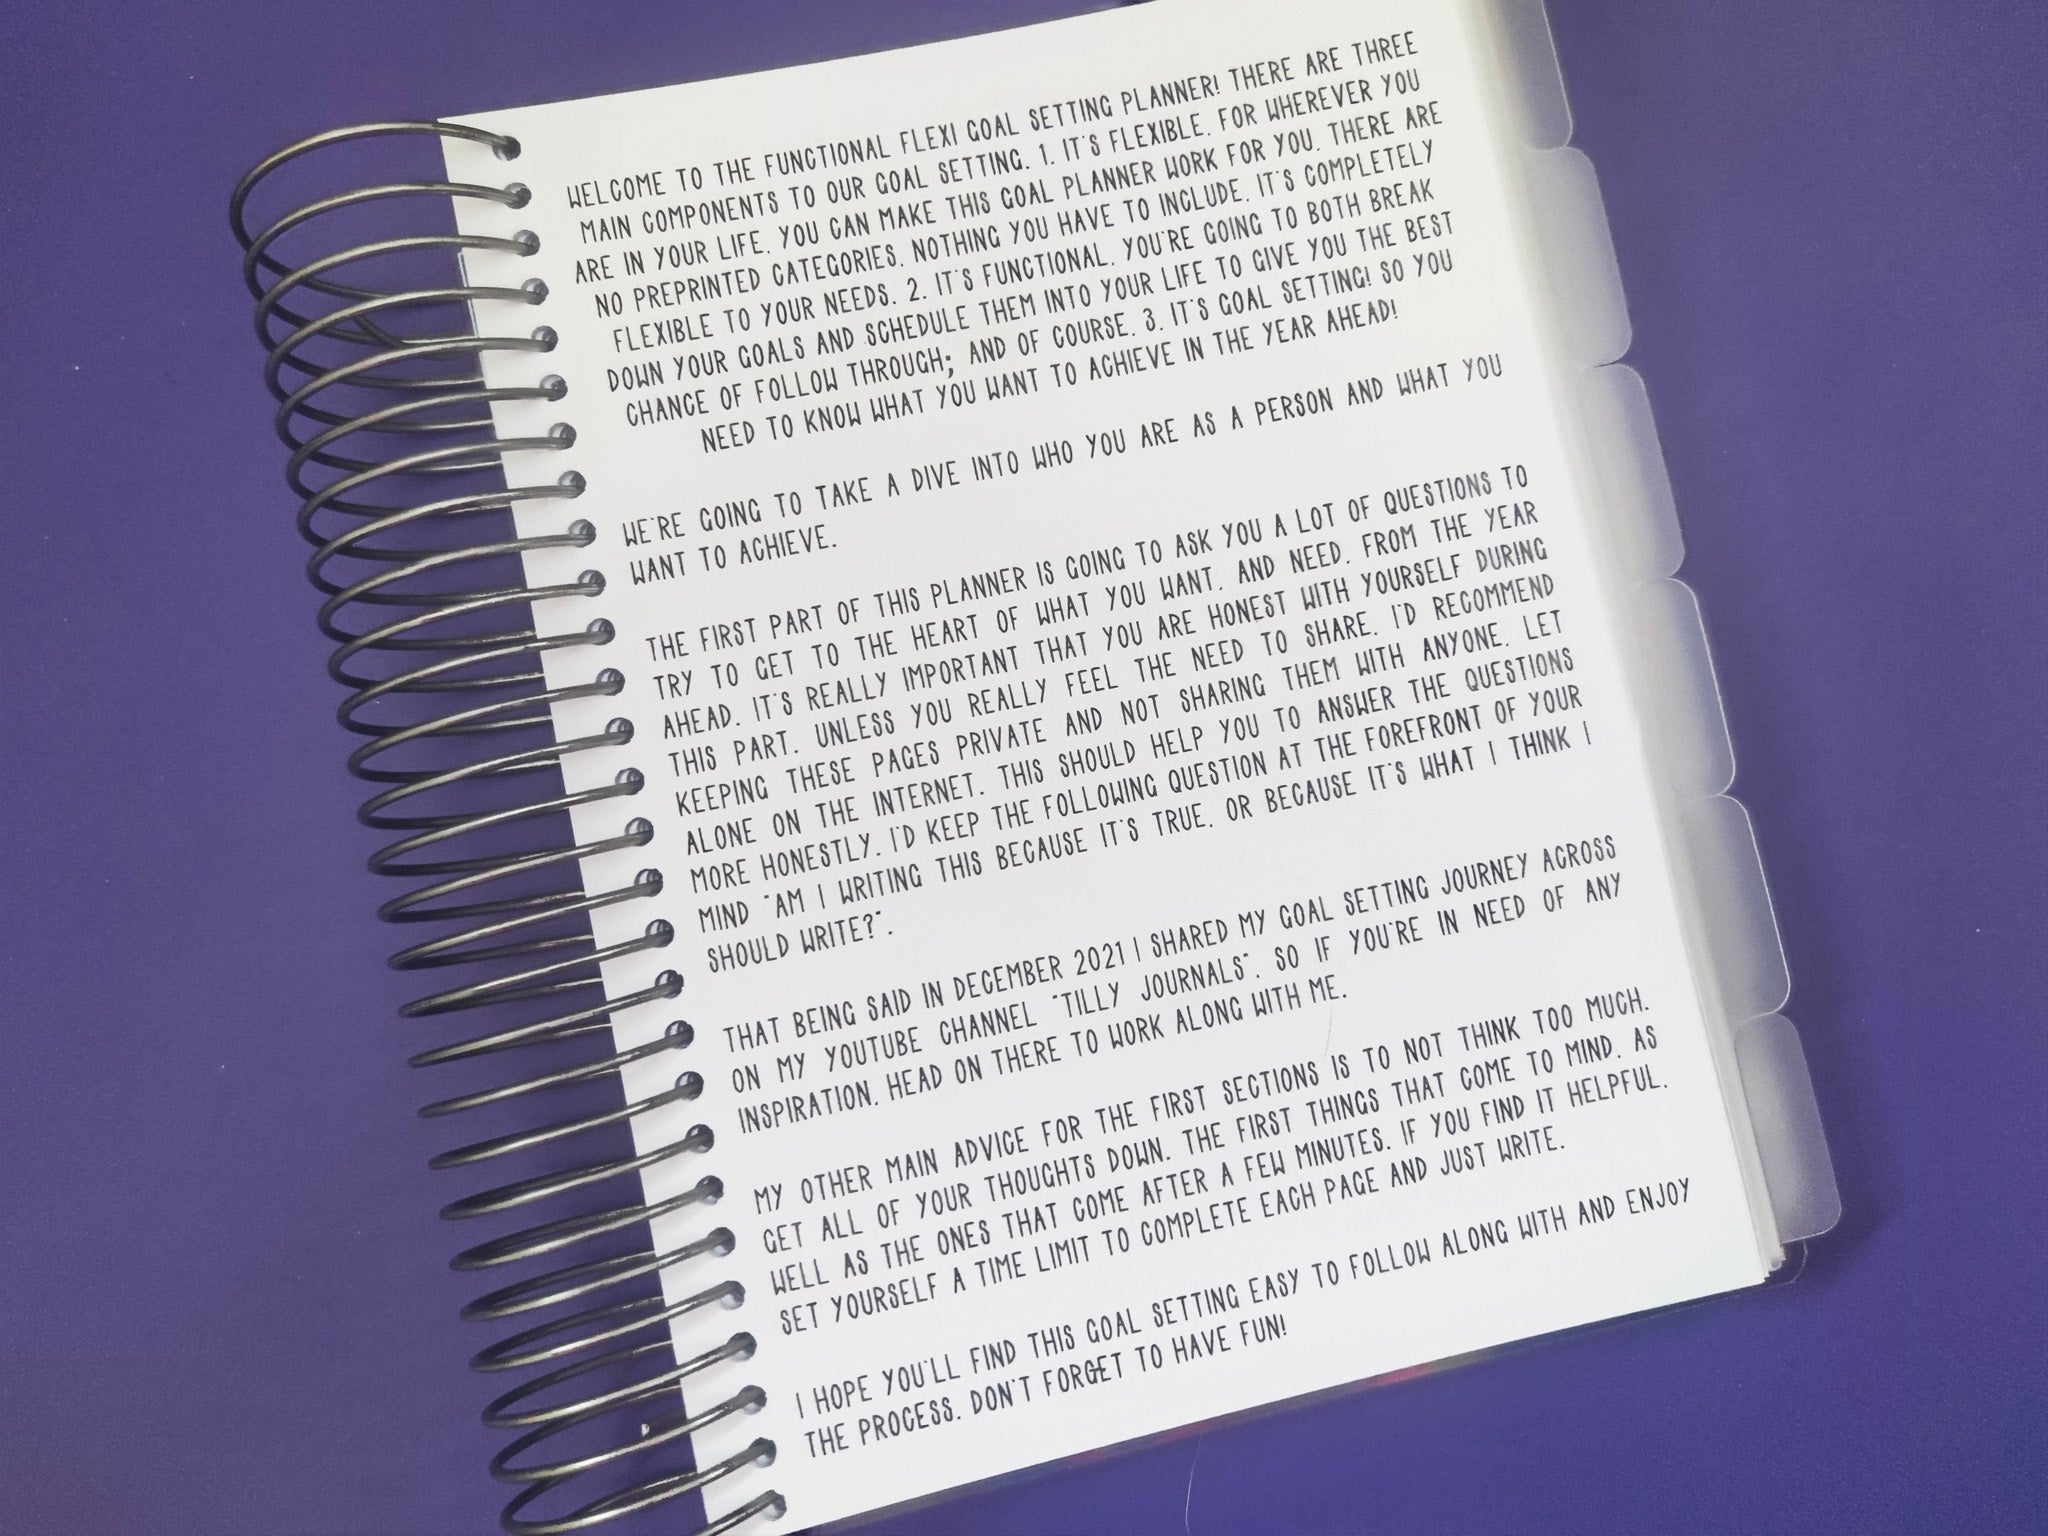 WELCOME TO THE FUNCTIONAL FLEXI GOAL SETTING PLANNER! THERE ARE THREE
MAIN COMPONENTS TO OUR GOAL SETTING. 1. IT'S FLEXIBLE. FOR WHEREVER YOU
ARE IN YOUR LIFE. YOU CAN MAKE THIS GOAL PLANNER WORK FOR YOU. THERE ARE
NO PREPRINTED CATEGORIES. NOTHING YOU HAVE TO INCLUDE. IT'S COMPLETELY
FLEXIBLE TO YOUR NEEDS. 2. IT'S FUNCTIONAL. YOU'RE GOING TO BOTH BREAK
DOWN YOUR GOALS AND SCHEDULE THEM INTO YOUR LIFE TO GIVE YOU THE BEST
CHANCE OF FOLLOW THROUGH; AND OF COURSE. 3. IT'S GOAL SETTING! SO YOU
NEED TO KNOW WHAT YOU WANT TO ACHIEVE IN THE YEAR AHEAD!
WE'RE GOING TO TAKE A DIVE INTO WHO YOU ARE AS A PERSON AND WHAT YOU
WANT TO ACHIEVE.
THE FIRST PART OF THIS PLANNER IS GOING TO ASK YOU A LOT OF QUESTIONS TO
TRY TO GET TO THE HEART OF WHAT YOU WANT. AND NEED. FROM THE YEAR
AHEAD. IT'S REALLY IMPORTANT THAT YOU ARE HONEST WITH YOURSELF DURING
THIS PART. UNLESS YOU REALLY FEEL THE NEED TO SHARE. I'D RECOMMEND
KEEPING THESE PAGES PRIVATE AND NOT SHARING THEM WITH ANYONE. LET
ALONE ON THE INTERNET. THIS SHOULD HELP YOU TO ANSWER THE QUESTIONS
MORE HONESTLY. I'D KEEP THE FOLLOWING QUESTION AT THE FOREFRONT OF YOUR
MIND "AM I WRITING THIS BECAUSE IT'S TRUE. OR BECAUSE IT'S WHAT I THINK I
SHOULD WRITE?".
THAT BEING SAID IN DECEMBER 2021 I SHARED MY GOAL SETTING JOURNEY ACROSS
ON MY YOUTUBE CHANNEL "TILLY JOURNALS". SO IF YOU'RE IN NEED OF ANY
INSPIRATION. HEAD ON THERE TO WORK ALONG WITH ME.
MY OTHER MAIN ADVICE FOR THE FIRST SECTIONS IS TO NOT THINK TOO MUCH.
GET ALL OF YOUR THOUGHTS DOWN. THE FIRST THINGS THAT COME TO MIND. AS
WELL AS THE ONES THAT COME AFTER A FEW MINUTES. IF YOU FIND IT HELPFUL.
SET YOURSELF A TIME LIMIT TO COMPLETE EACH PAGE AND JUST WRITE.
I HOPE YOU'LL FIND THIS GOAL SETTING EASY TO FOLLOW ALONG WITH AND ENJOY
THE PROCESS. DON'T FORGET TO HAVE FUN!